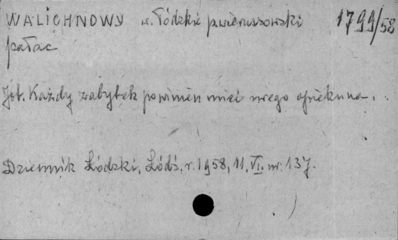 WALICHNOWY w. Łódzkie pwieruszowski 1799/58
pałac
Jot. Każdy zabytek powinien mieć swego opiekuna.
Dziennik Łódzki, Łódź, r. 1958, 11.VI. nr. 137.